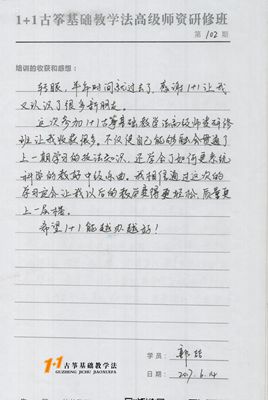 1+1古筝基础教学法高级师资研修班
第 102 期
培训的收获和感想：
转眼，半年时间就过去了，感谢1+1让我
又认识了很多新朋友。
这次参加1+1古筝基础教学法高级师资研修
班让我收获很多。不仅使自己能够融会贯通了
上一期学习的技法知识，还学会了如何更系统
科学的教好中级乐曲。我相信通过这次的
学习定会让我以后的教学变得更轻松，质量更
上一层楼。
希望1+1能越办越好！
1+1 古筝基础教学法
GUZHENG JICHU JIAOXUEFA
学员：郭
日期：2017.6.14